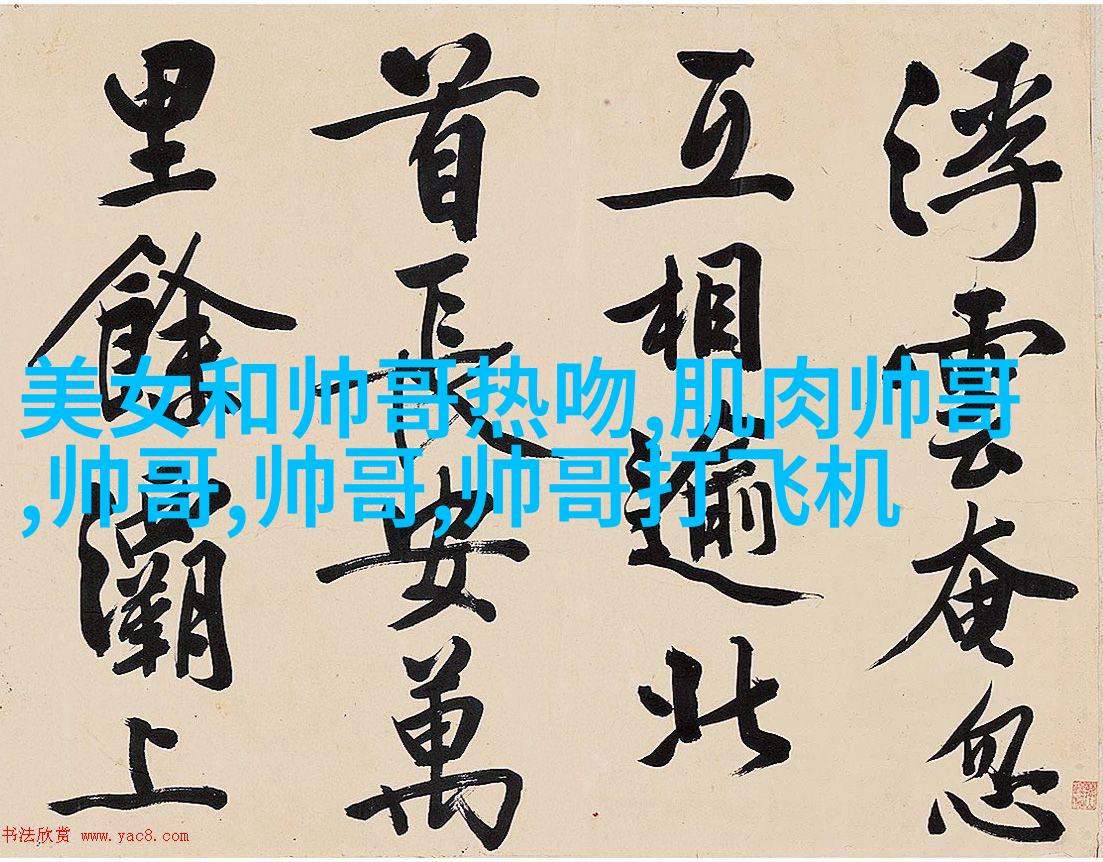 浮雲奄忽
互相逾北
首長安萬
里餘灞上
美女和帅哥热吻,肌肉帅哥
,帅哥,帅哥,帅哥打飞机
书法欣赏 www.yac8.com